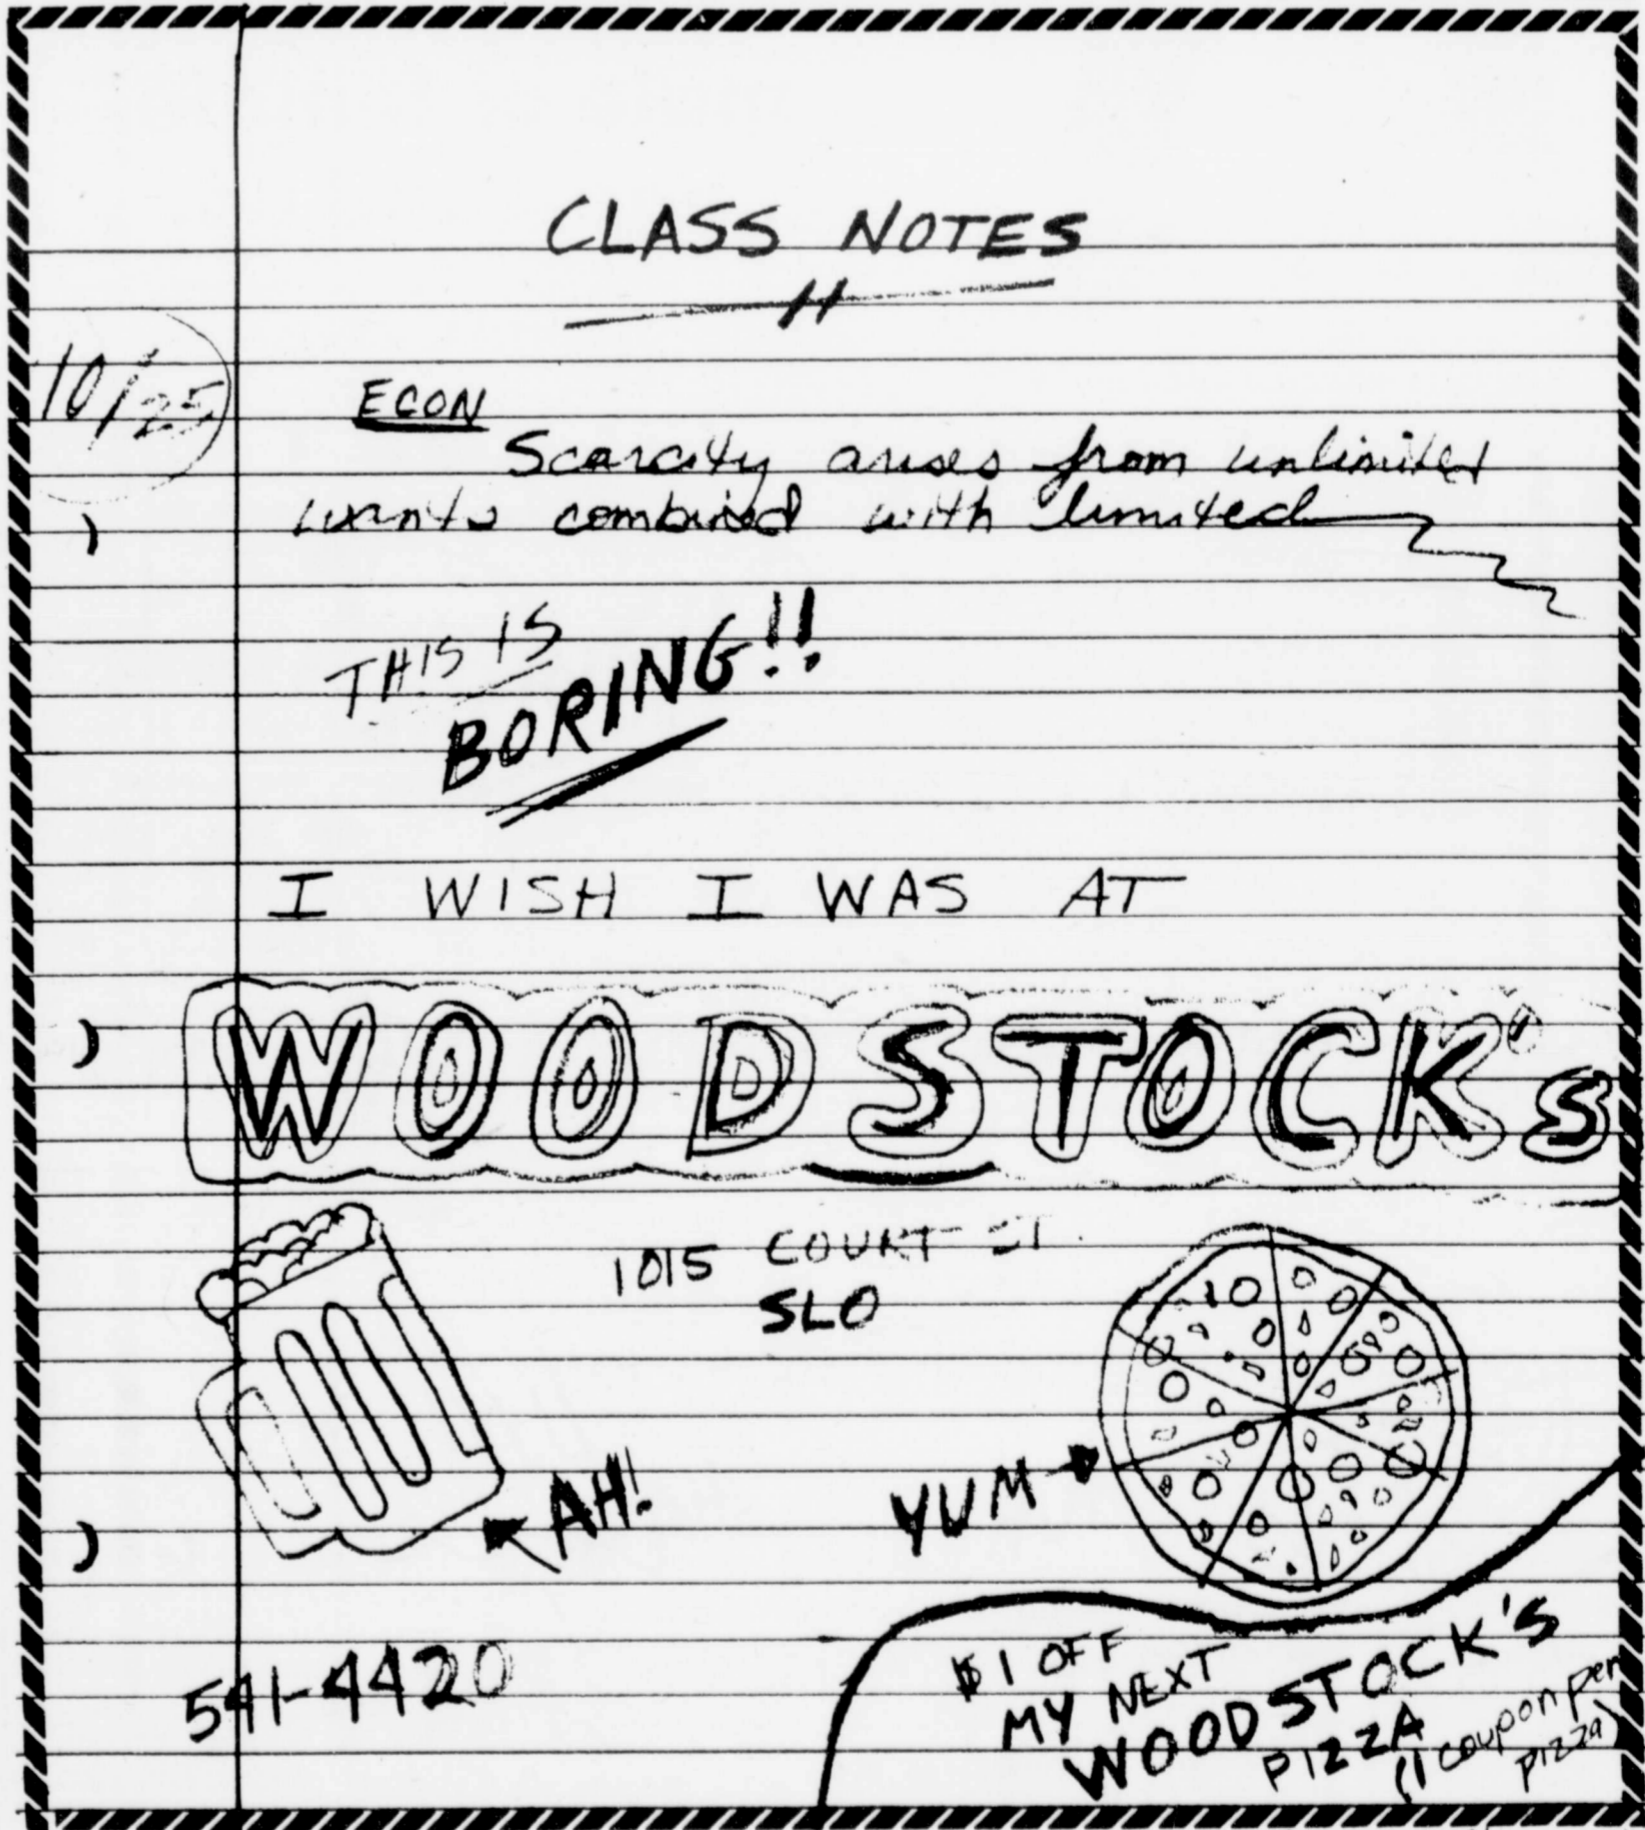 CLASS NOTES
10/25
ECON
Scarcity arises from unlimited
wants combined with limited
THIS IS
BORING!!
I WISH I WAS AT
WOODSTOCK's
1015 COURT ST.
SLO
AH!
YUM
541-4420
$1 OFF
MY NEXT
WOODSTOCK'S
PIZZA
(1 coupon per
pizza)